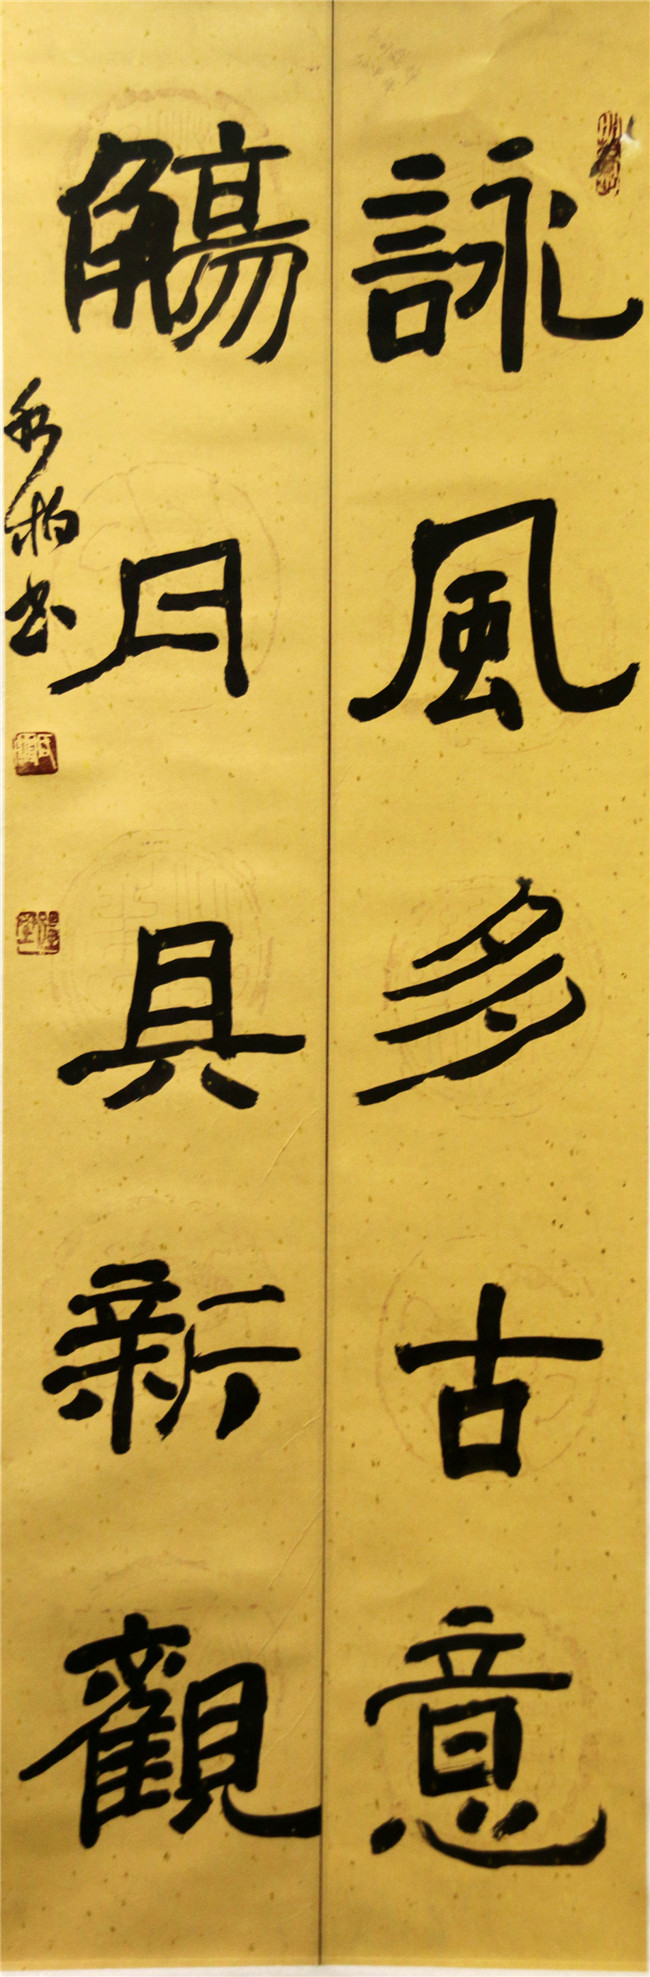 詠風多古意
觴月具新觀
柏書